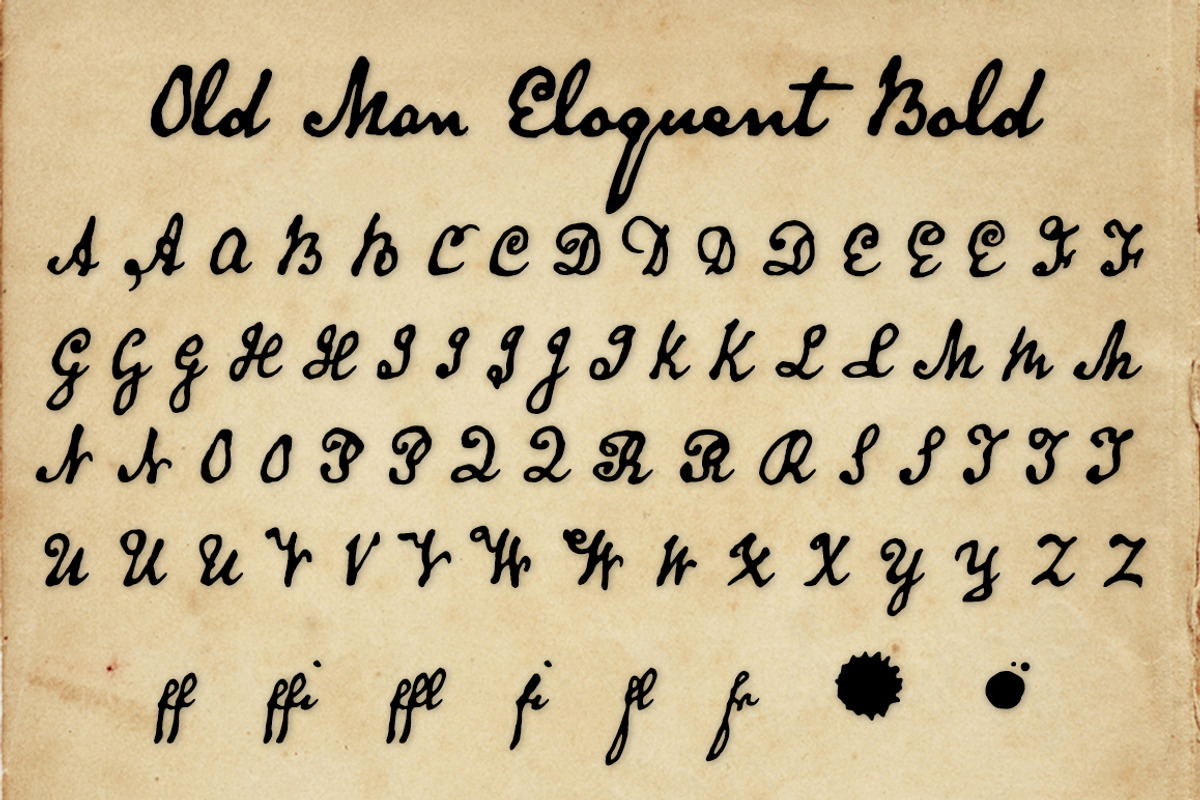 Old Man Eloquent Bold
A A A B B C C D D D D E E E F F
G G G H H I I J J J K K L L M M M
N N O O P P Q Q R R R S S T T T
U U U V V V W W W X X Y Y Z Z
ff ffi ffl fi fl fr